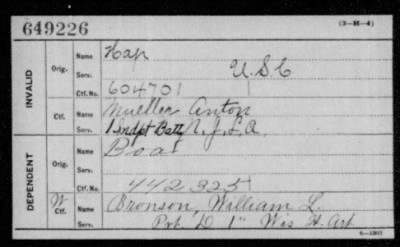 649226
(3-H-4)
INVALID
Orig.
Name Hap
Serv. U.S.C
Ctf. No. 604701
Ctf.
Name Mueller Anton
Serv. 1 Indpt Batt N.J.L.A.
DEPENDENT
Orig.
Name Boat
Serv.
Ctf. No. 442325
W
Ctf.
Name Bronson, William L.
Pvt. "D 1" Wis H. Art
6-1302